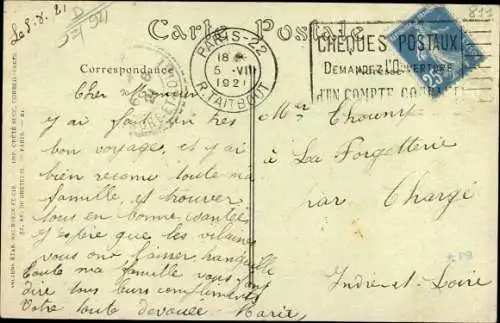 Le 5.8.21
811
Carte Postale
Correspondance
PARIS-22
18
5 -VIII
1921
R. TAITBOUT
CHEQUES POSTAUX
DEMANDEZ L'OUVERTURE
D'EN COMPTE COURANT
25
Cher Monsieur
j'y ai fait un très
bon voyage, et j'y ai
bien reconnu toute ma
famille, et trouver
tous en bonne santée
J'espère que les vilaines
vous ont laisser tranquille
toute ma famille vous font
dire tous leurs compliments
Votre toute dévouée Marie
Mr Thouny
à La Forgetterie
par Chargé
Indre-et-Loire